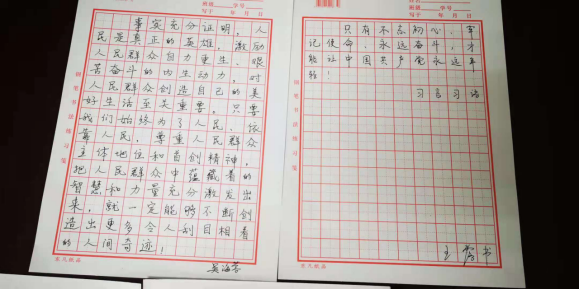 班级 学号
写于 年 月 日
事实充分证明，人
民是真正的英雄，激励
人民群众自力更生、艰
苦奋斗的内生动力，对
人民群众创造自己的美
好生活至关重要。只要
我们始终为了人民、依
靠人民，尊重人民群众
主体地位和首创精神，
把人民群众中蕴藏着的
智慧和力量充分激发出
来，就一定能够不断创
造出更多令人刮目相看
的人间奇迹！
钢笔书法练习笺
班级 学号
写于 年 月 日
只有不忘初心、牢
记使命、永远奋斗，才
能让中国共产党永远年
轻！
习言习语
书
钢笔书法练习笺